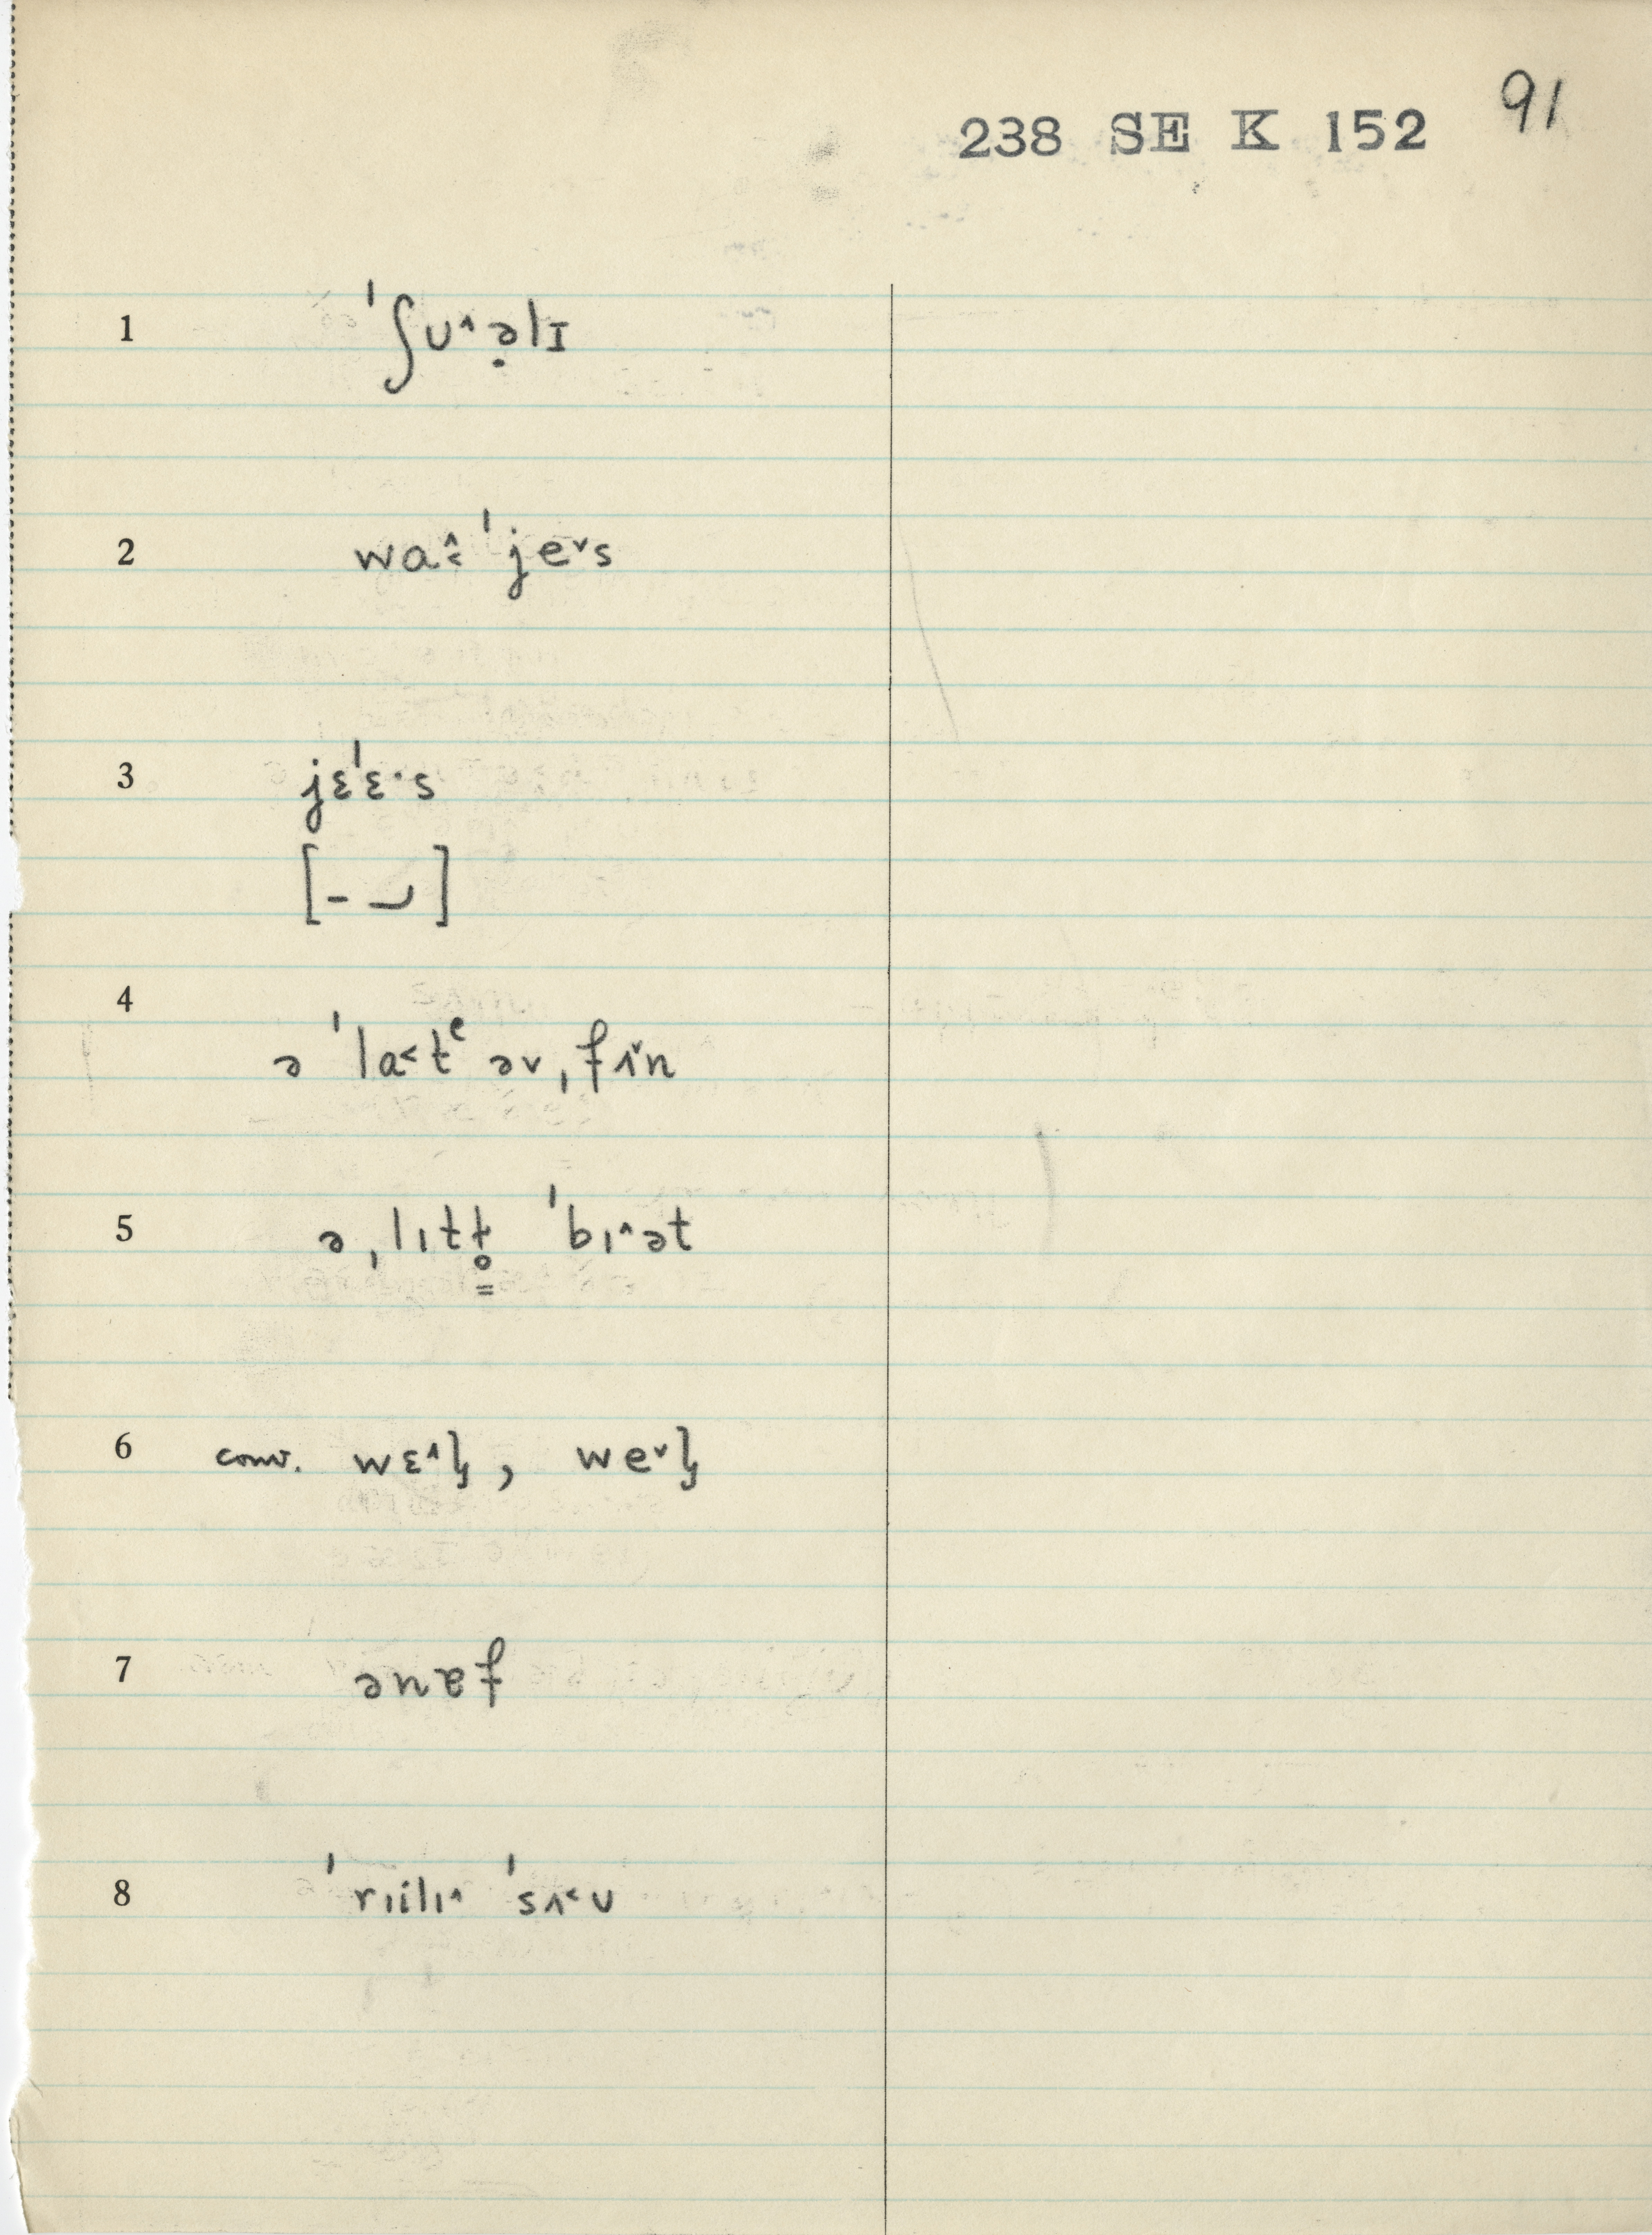 238 SE K 152 91
1 ˈʃʊ^ə̣lɪ
2 wa˄˂ ˈje˅s
3 jɛˈɛ·s
[– ⌣]
4 ə ˈla˂tᵉ əv ˌfʌ˅n
5 ə ˌlɪtt̥ ˈbɪ^ət
=
6 conv. wɛ^ɫ, we˅ɫ
7 ənɐf
8 ˈrɪilɪ^ ˈsʌ˂ʊ